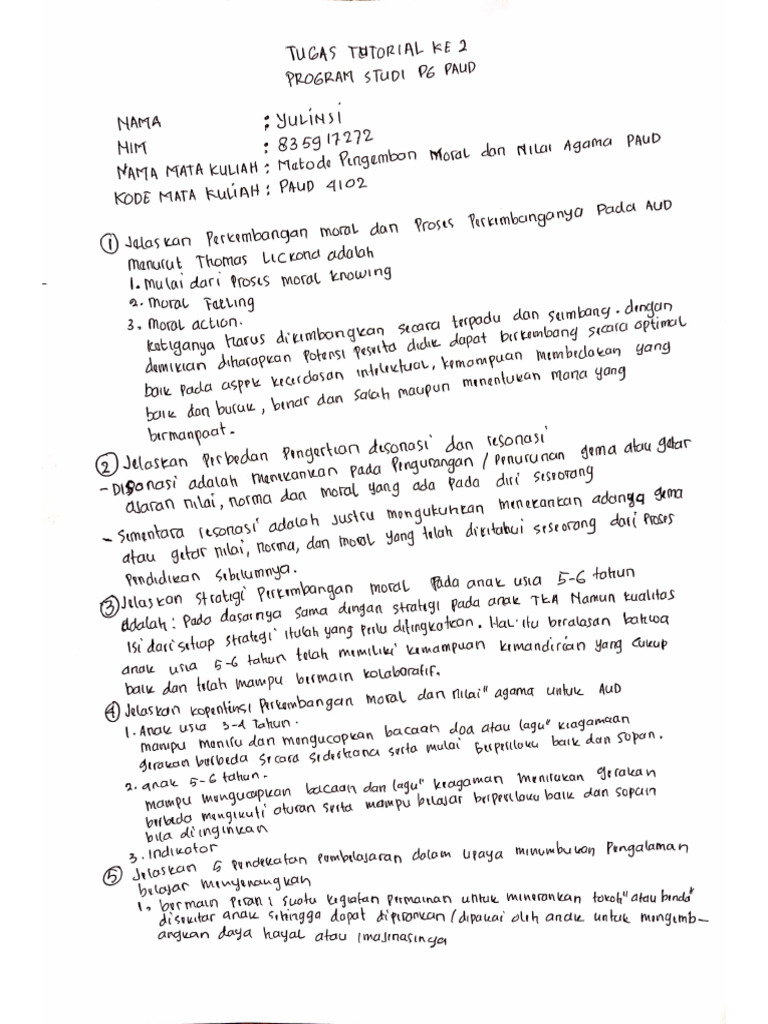 TUGAS TUTORIAL KE 2
PROGRAM STUDI PG PAUD
NAMA : YULINSI
NIM : 835917272
NAMA MATA KULIAH : Metode Pengemban Moral dan Nilai Agama PAUD
KODE MATA KULIAH : PAUD 4102
① Jelaskan Perkembangan moral dan Proses Perkembanganya Pada AUD
menurut Thomas Lickona adalah
1. Mulai dari Proses moral knowing
2. Moral Felling
3. Moral action.
Ketiganya Harus dikembangkan secara terpadu dan seimbang. dengan
demikian diharapkan Potensi Peserta didik dapat berkembang secara optimal
baik pada aspek kecerdasan intelektual, kemampuan membedakan yang
baik dan buruk, benar dan salah maupun menentukan mana yang
bermanpaat.
② Jelaskan Perbedan Pengertian disonasi dan resonasi
- Disonasi adalah menekankan pada Pengurangan / Penurunan gema atau getar
ajaran nilai, norma dan moral yang ada pada diri seseorang
- Sementara resonasi adalah justru mengukuhkan menekankan adanya gema
atau getar nilai, norma, dan moral yang telah diketahui seseorang dari Proses
Pendidikan Sebelumnya.
③ Jelaskan strategi Perkembangan moral Pada anak usia 5-6 tahun
adalah : Pada dasarnya sama dengan strategi pada anak TKA Namun kualitas
Isi dari setiap strategi itulah yang perlu ditingkatkan. Hal itu beralasan bahwa
anak usia 5-6 tahun telah memiliki kemampuan kemandirian yang cukup
baik dan telah mampu bermain kolaboratif.
④ Jelaskan kopentensi Perkembangan moral dan nilai" agama untuk AUD
1. Anak usia 3-4 Tahun.
mampu meniru dan mengucapkan bacaan doa atau lagu" keagamaan
gerakan berbeda secara sederkana serta mulai berperilaku baik dan sopan.
2. anak 5-6 tahun.
mampu mengucapkan bacaan dan lagu" keagaman menirukan gerakan
berbeda mengikuti aturan serta mampu belajar berperilaku baik dan sopan
bila diinginkan
3. Indikator
⑤ Jelaskan 5 pendekatan pembelajaran dalam upaya minumbukan Pengalaman
belajar menyenangkan
1. bermain peran : suatu kegiatan permainan untuk minerankan tokoh" atau benda"
disekitar anak sehingga dapat diperankan / dipakai oleh anak untuk mengemb-
angkan daya hayal atau imajinasinya